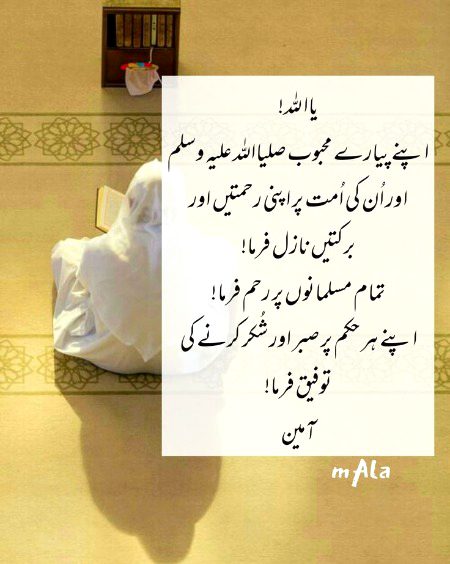 یا اللہ!
اپنے پیارے محبوب صلی اللہ علیہ وسلم
اور اُن کی اُمت پر اپنی رحمتیں اور
برکتیں نازل فرما!
تمام مسلمانوں پر رحم فرما!
اپنے ہر حکم پر صبر اور شُکر کرنے کی
توفیق فرما!
آمین
mALa